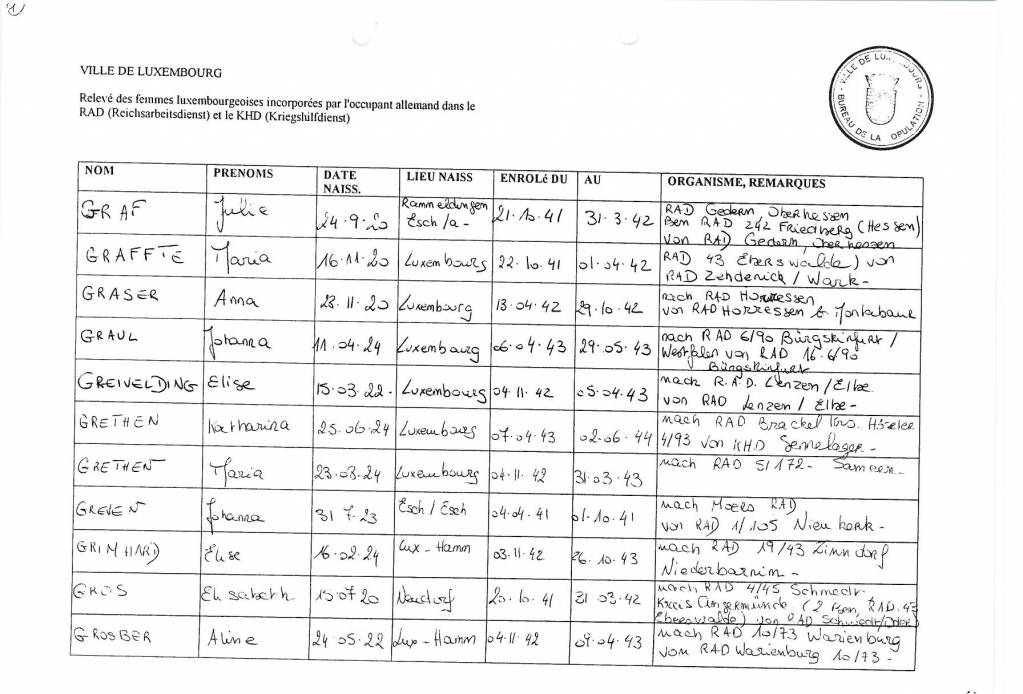 1
VILLE DE LUXEMBOURG
Relevé des femmes luxembourgeoises incorporées par l'occupant allemand dans le
RAD (Reichsarbeitsdienst) et le KHD (Kriegshilfdienst)
VILLE DE LUXEMBOURG - BUREAU DE LA POPULATION -
NOM PRENOMS DATE NAISS. LIEU NAISS ENROLé DU AU ORGANISME, REMARQUES
GRAF Julie 24-9-20 Rammeldingen Esch/a- 21-10-41 31-3-42 RAD Gedern, Oberhessen
RAD 242 Friedberg (Hessen)
von RAD Gedern, Oberhessen
GRAFFTE Maria 16-11-20 Luxembourg 22-10-41 01-04-42 RAD 43 Eberswalde) von
RAD Zehdenick / Wark-
GRASER Anna 23-11-20 Luxembourg 13-04-42 29-10-42 nach RAD Horressen
von RAD Horressen b Montabaur
GRAUL Johanna 11-04-24 Luxembourg 06-04-43 29-05-43 nach RAD 6/90 Bürgskinfurt /
Westfalen von RAD 16-6/90
Bürgskinfurt
GREIVELDING Elise 15-03-22- Luxembourg 04-11-42 05-04-43 nach R.A.D. Lenzen / Elbe
von RAD Lenzen / Elbe-
GRETHEN Katharina 25-06-24 Luxembourg 07-04-43 02-06-44 nach RAD Brackel Krs. Höxter
4/93 von KHD Sennelager-
GRETHEN Maria 23-03-24 Luxembourg 04-11-42 31-03-43 nach RAD 5/172-
GREVEN Johanna 31 7-23 Esch / Esch 04-04-41 01-10-41 nach Moers RAD
von RAD 1/105 Nieukerk-
GRIMHARD Elise 16-02-24 Lux-Hamm 03-11-42 26-10-43 nach RAD 19/43 Zinndorf
Niederbarnim-
GROS Elisabeth 15 07 20 Neudorf 20-10-41 31 03-42 nach RAD 4/45 Schmedt-
Kreis Angermünde (2 Bsn, RAD-43
Eberswalde) von RAD Schwedt/Oder)
GROSBER Aline 24-05-22 Lux-Hamm 04-11-42 09-04-43 nach RAD 10/73 Warienburg
von RAD Warienburg 10/73-